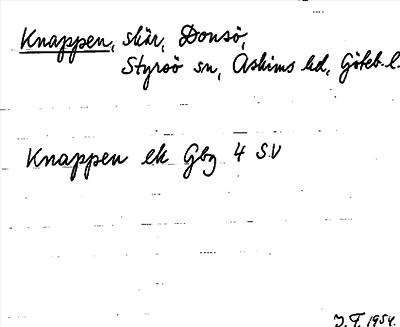 Knappen, skär, Donsö,
Styrsö sn, Askims hd, Göteb. l.
Knappen ek Gbg 4 SV
J.F. 1954.